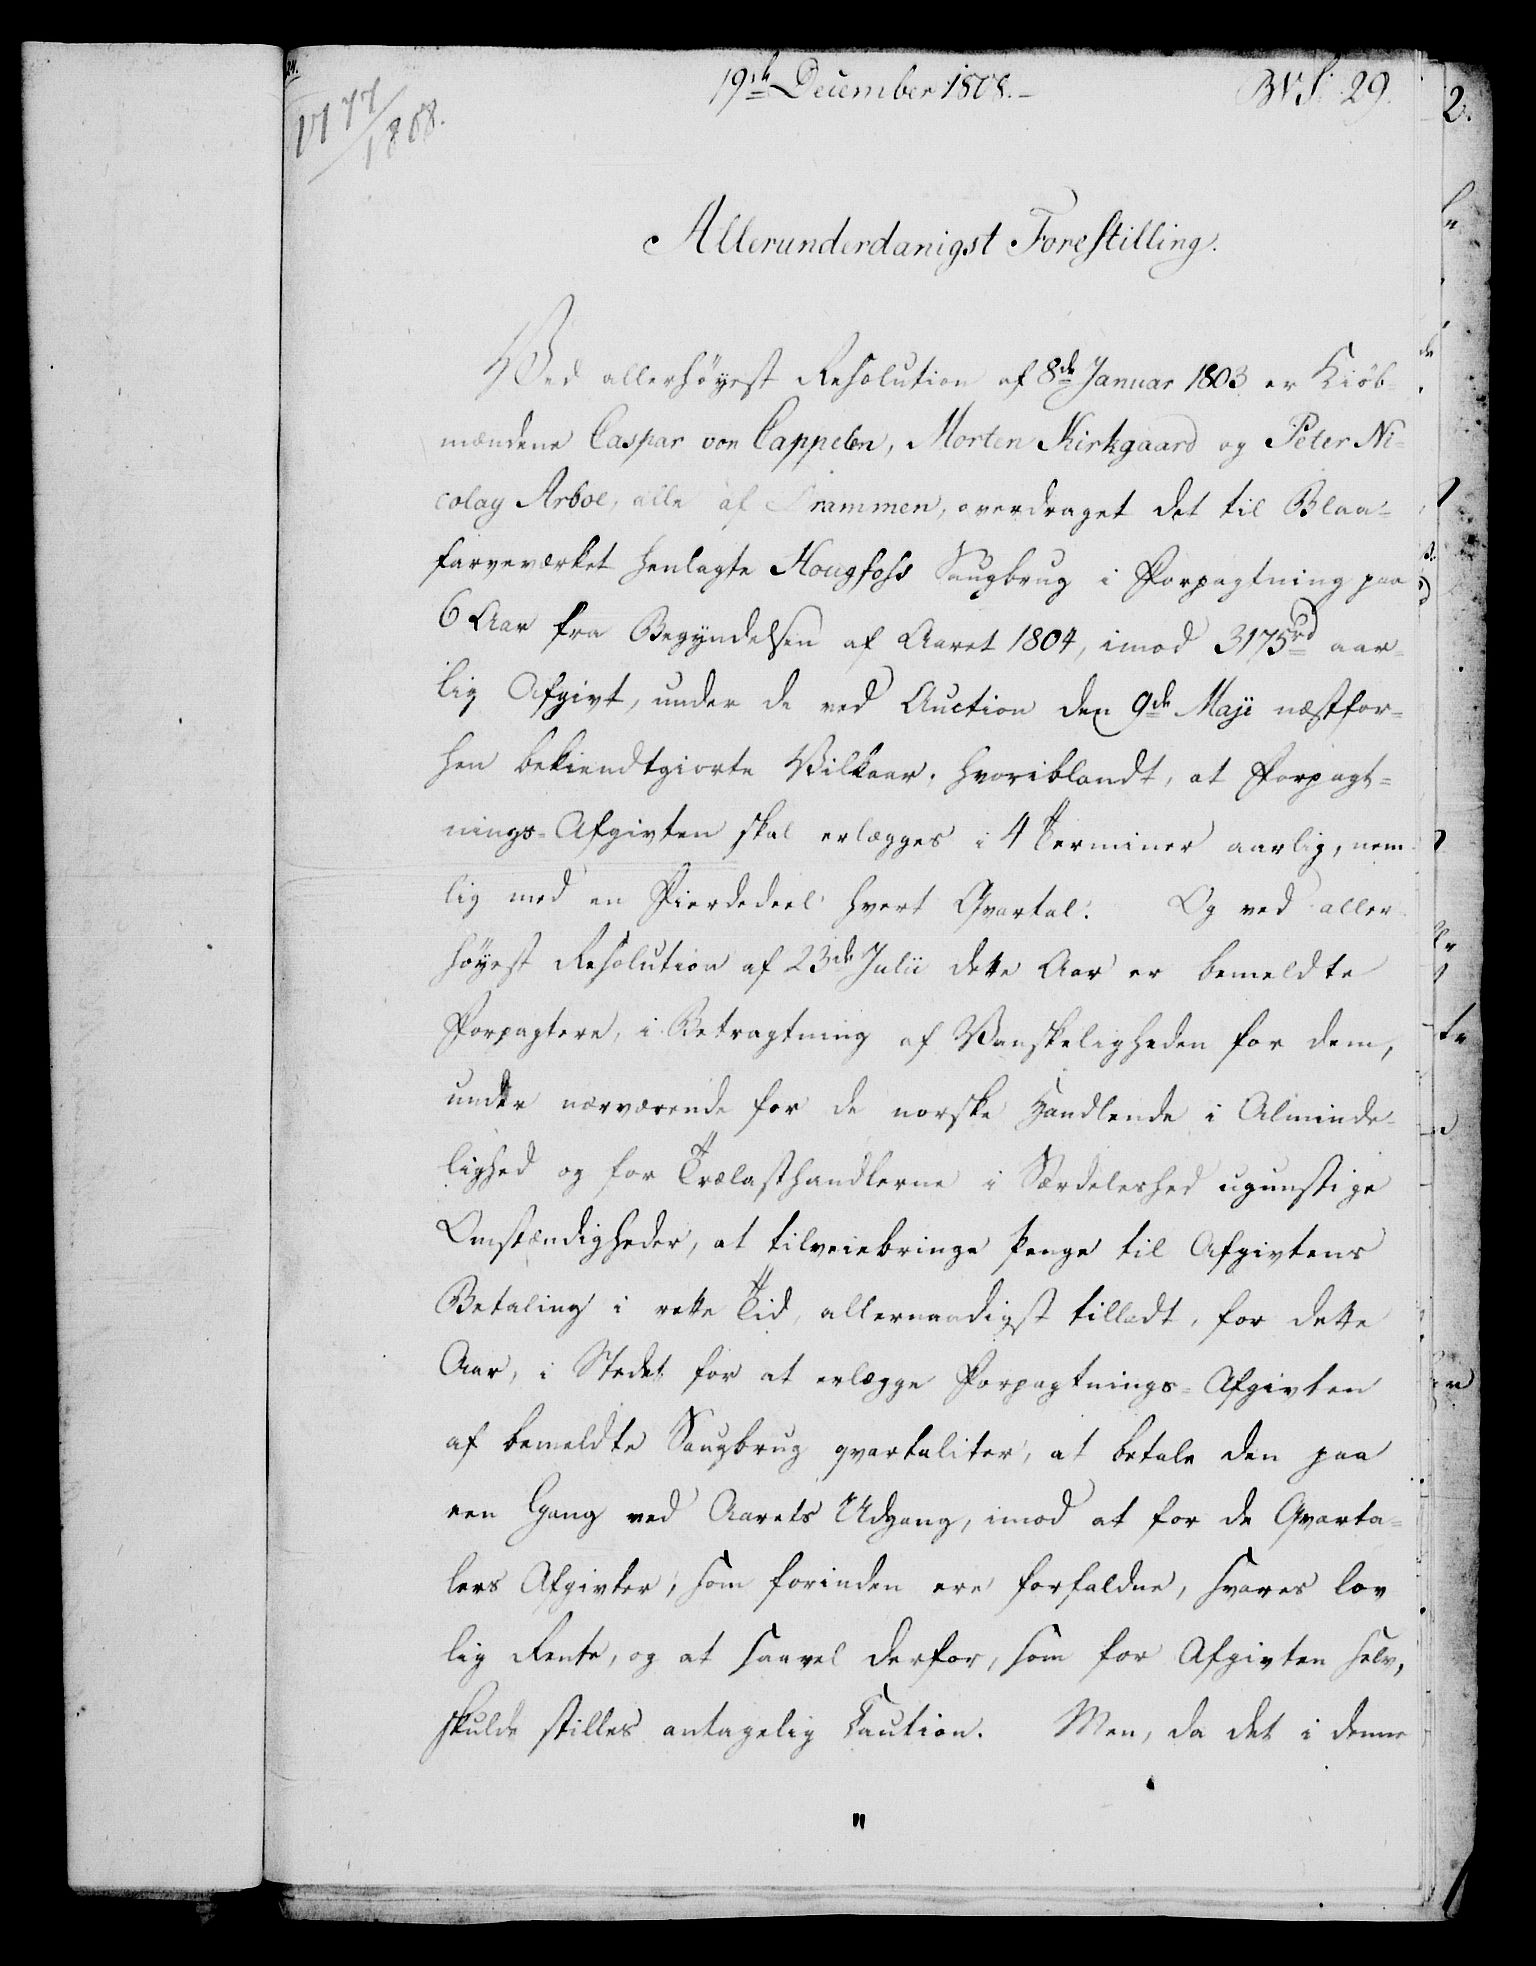 19de December 1808.- BVS. 29.
1777/1808.
Allerunderdanigst Forestilling.
Ved allerhöyest Resolution af 8de Januar 1803 er Kiöb-
mændene Caspar von Cappelen, Morten Kirkgaard og Peter Ni-
colay Arboe, alle af Drammen, overdraget det til Blaa-
farveværket henlagte Hougfoss Saugbrug i Forpagtning paa
6 Aar fra Begyndelsen af Aaret 1804, imod 3175 rd aar-
lig Afgivt, under de ved Auction den 9de Maji næstfor-
hen bekiendtgiorte Vilkaar, hvoriblandt, at Forpagt-
nings-Afgivten skal erlægges i 4 Terminer aarlig, nem-
lig med en Fierdedeel hvert Qvartal. Og ved aller-
höyest Resolution af 23de Julii dette Aar er bemeldte
Forpagtere, i Betragtning af Vanskeligheden for dem,
under nærværende for de norske Handlende i Alminde-
lighed og for Trælasthandlerne i Særdeleshed ugunstige
Omstændigheder, at tilveiebringe Penge til Afgivtens
Betaling i rette Tid, allernaadigst tilladt, for dette
Aar, i Stedet for at erlægge Forpagtnings-Afgivten
af bemeldte Saugbrug qvartaliter, at betale den paa
een Gang ved Aarets Udgang, imod at for de Qvarta-
lers Afgivter, som forinden ere forfaldne, svares lov-
lig Rente, og at saavel derfor, som for Afgivten selv,
skulde stilles antagelig Caution. Men, da det i denne
"